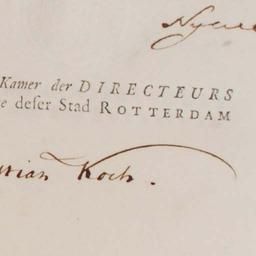 Kamer der DIRECTEURS
e deser Stad ROTTERDAM
rian Koch.